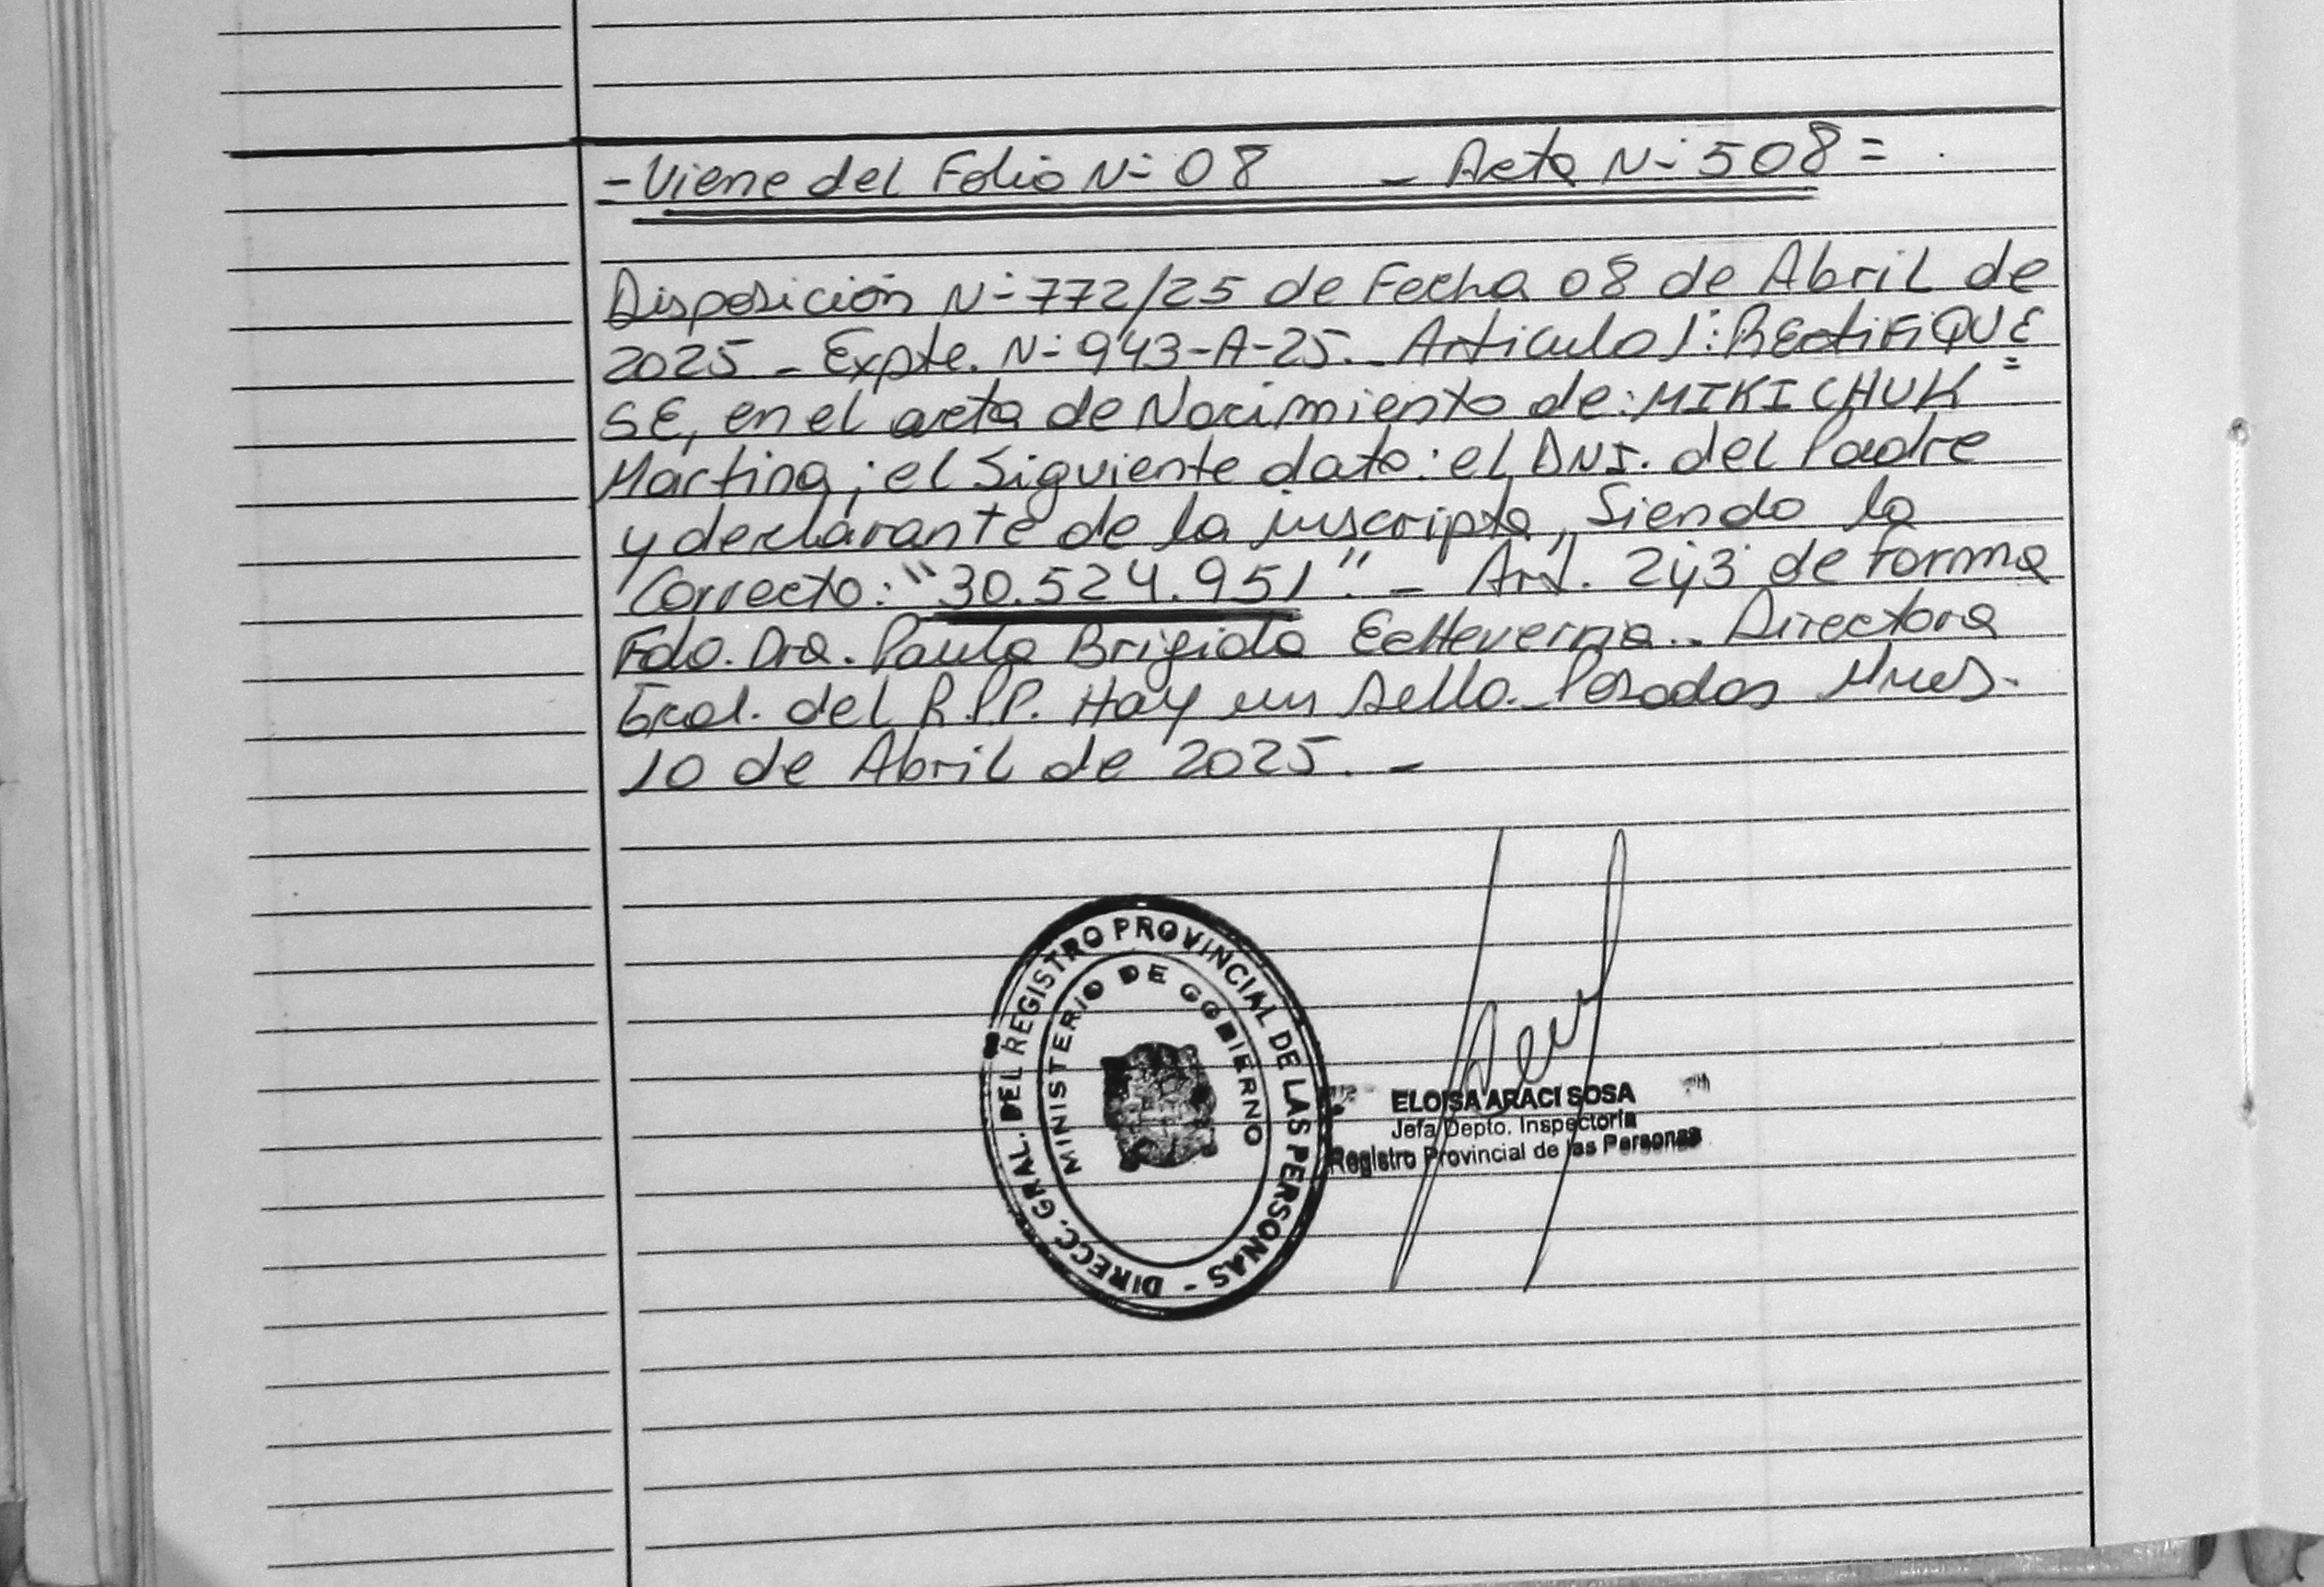 - Viene del Folio N° 08 - Acta N° 508 =
Disposición N° 772/25 de Fecha 08 de Abril de
2025 - Expte. N° 943-A-25. - Articulo 1°: REctiFiQUE
=
SE, en el acta de Nacimiento de: MIKICHUK
Martina; el Siguiente dato: el DNI. del Padre
y declarante de la inscripta, Siendo lo
Correcto: "30.524.951". - Art. 2° y 3° de forma
Fdo. Dra. Paula Brigida Echeverria. - Directora
Gral. del R.P.P. Hay un Sello. - Posadas Mnes.
10 de Abril de 2025. -
DIRECC. GRAL. DEL REGISTRO PROVINCIAL DE LAS PERSONAS -
MINISTERIO DE GOBIERNO
ELOISA ARACI SOSA
Jefa Depto. Inspectoría
Registro Provincial de las Personas